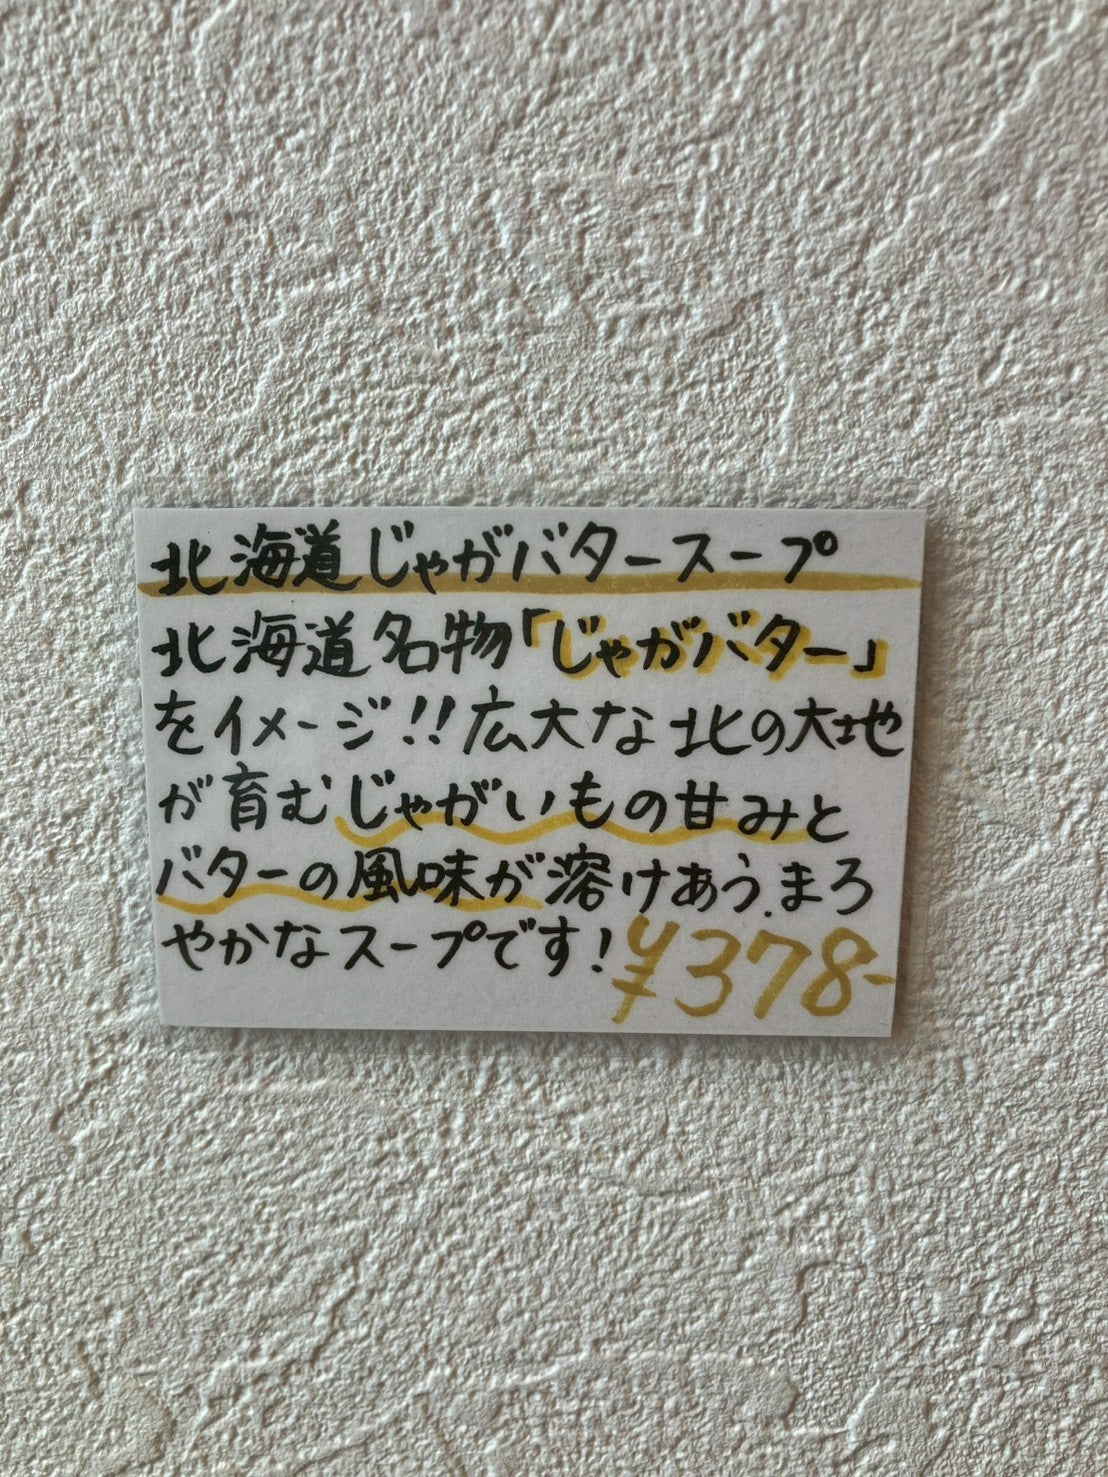 北海道じゃがバタースープ
北海道名物「じゃがバター」
をイメージ!!広大な北の大地
が育むじゃがいもの甘みと
バターの風味が溶けあう、まろ
やかなスープです!
¥378-